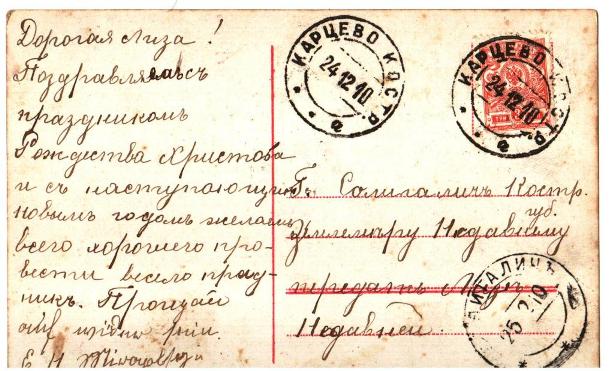 Дорогая Лиза!
Поздравляю съ
праздникомъ
Рождества Христова
и съ наступающимъ
новымъ годомъ желаю
всего хорошего про-
вести весело празд-
никъ. Прощай
КАРЦЕВО КОСТР.
24 12 10
г
КАРЦЕВО КОСТР.
24 12 10
г
Г. Солигаличъ Костр.
губ.
Землемѣру Недавнему
передать
Недавней.
ЛИГАЛИЧЪ
25 12 10